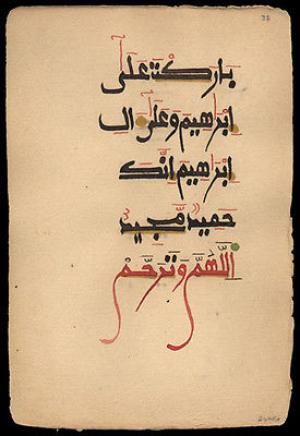 باركت على
إبراهيم وعلى ال
إبراهيم إنّك
حميد مّجيد
اللّهمّ وترحّم